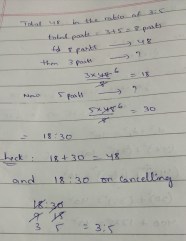 Total 48 in the ratio of 3:5
total parts = 3+5 = 8 parts
for 8 parts → 48
then 3 part → ?
3×48 6 / 8 = 18
Now 5 part → ?
5×48 6 / 8 = 30
= 18:30
check : 18+30 = 48
and 18:30 on cancelling
18:30
9 15
3 5 = 3:5